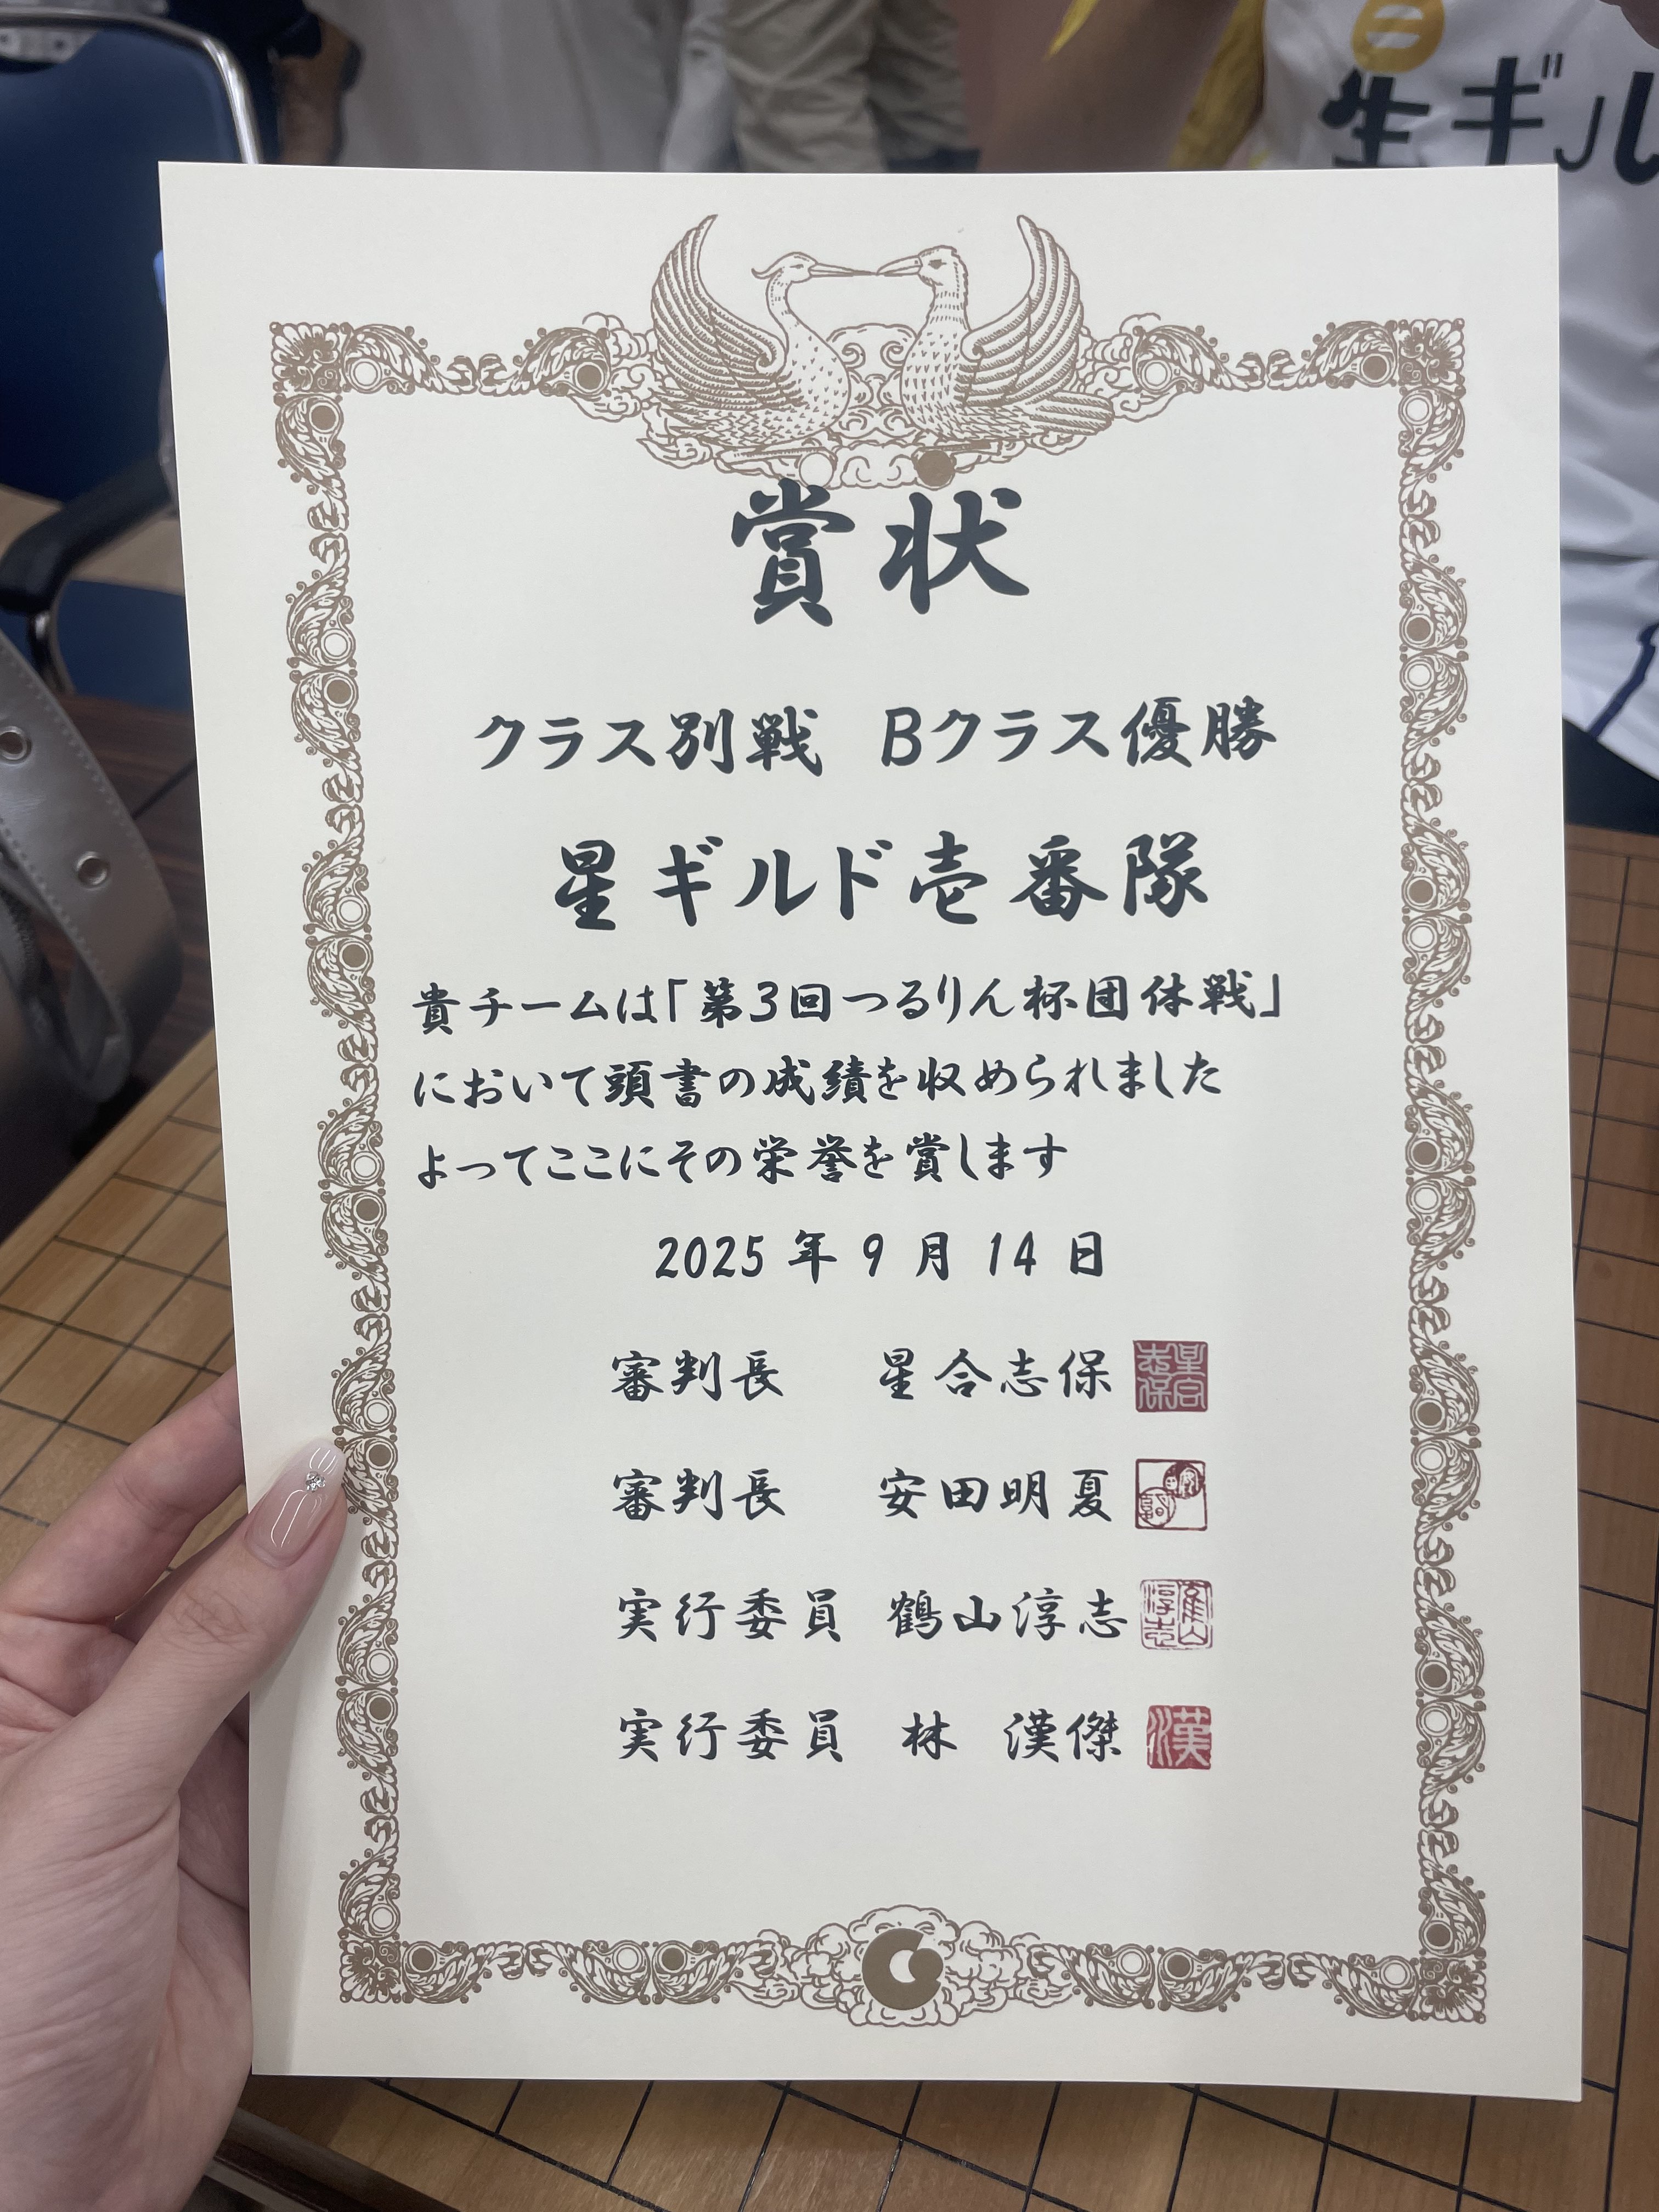 生ギル
賞状
クラス別戦 Bクラス優勝
星ギルド壱番隊
貴チームは「第3回つるりん杯団体戦」
において頭書の成績を収められました
よってここにその栄誉を賞します
2025年9月14日
審判長 星合志保
星合志保
審判長 安田明夏
実行委員 鶴山淳志
鶴山淳志
実行委員 林 漢傑
漢